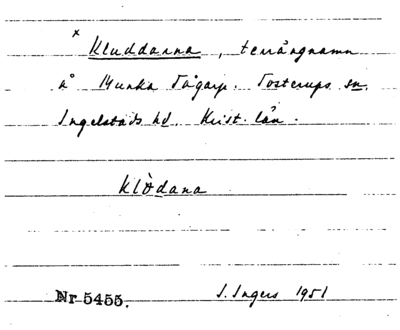 x Kluddanna, terrängnamn
å Munka Tågarp. Tosterups sn.
Ingelstads hd. Krist. län.
klòdana
Nr 5455. I. Ingers 1951